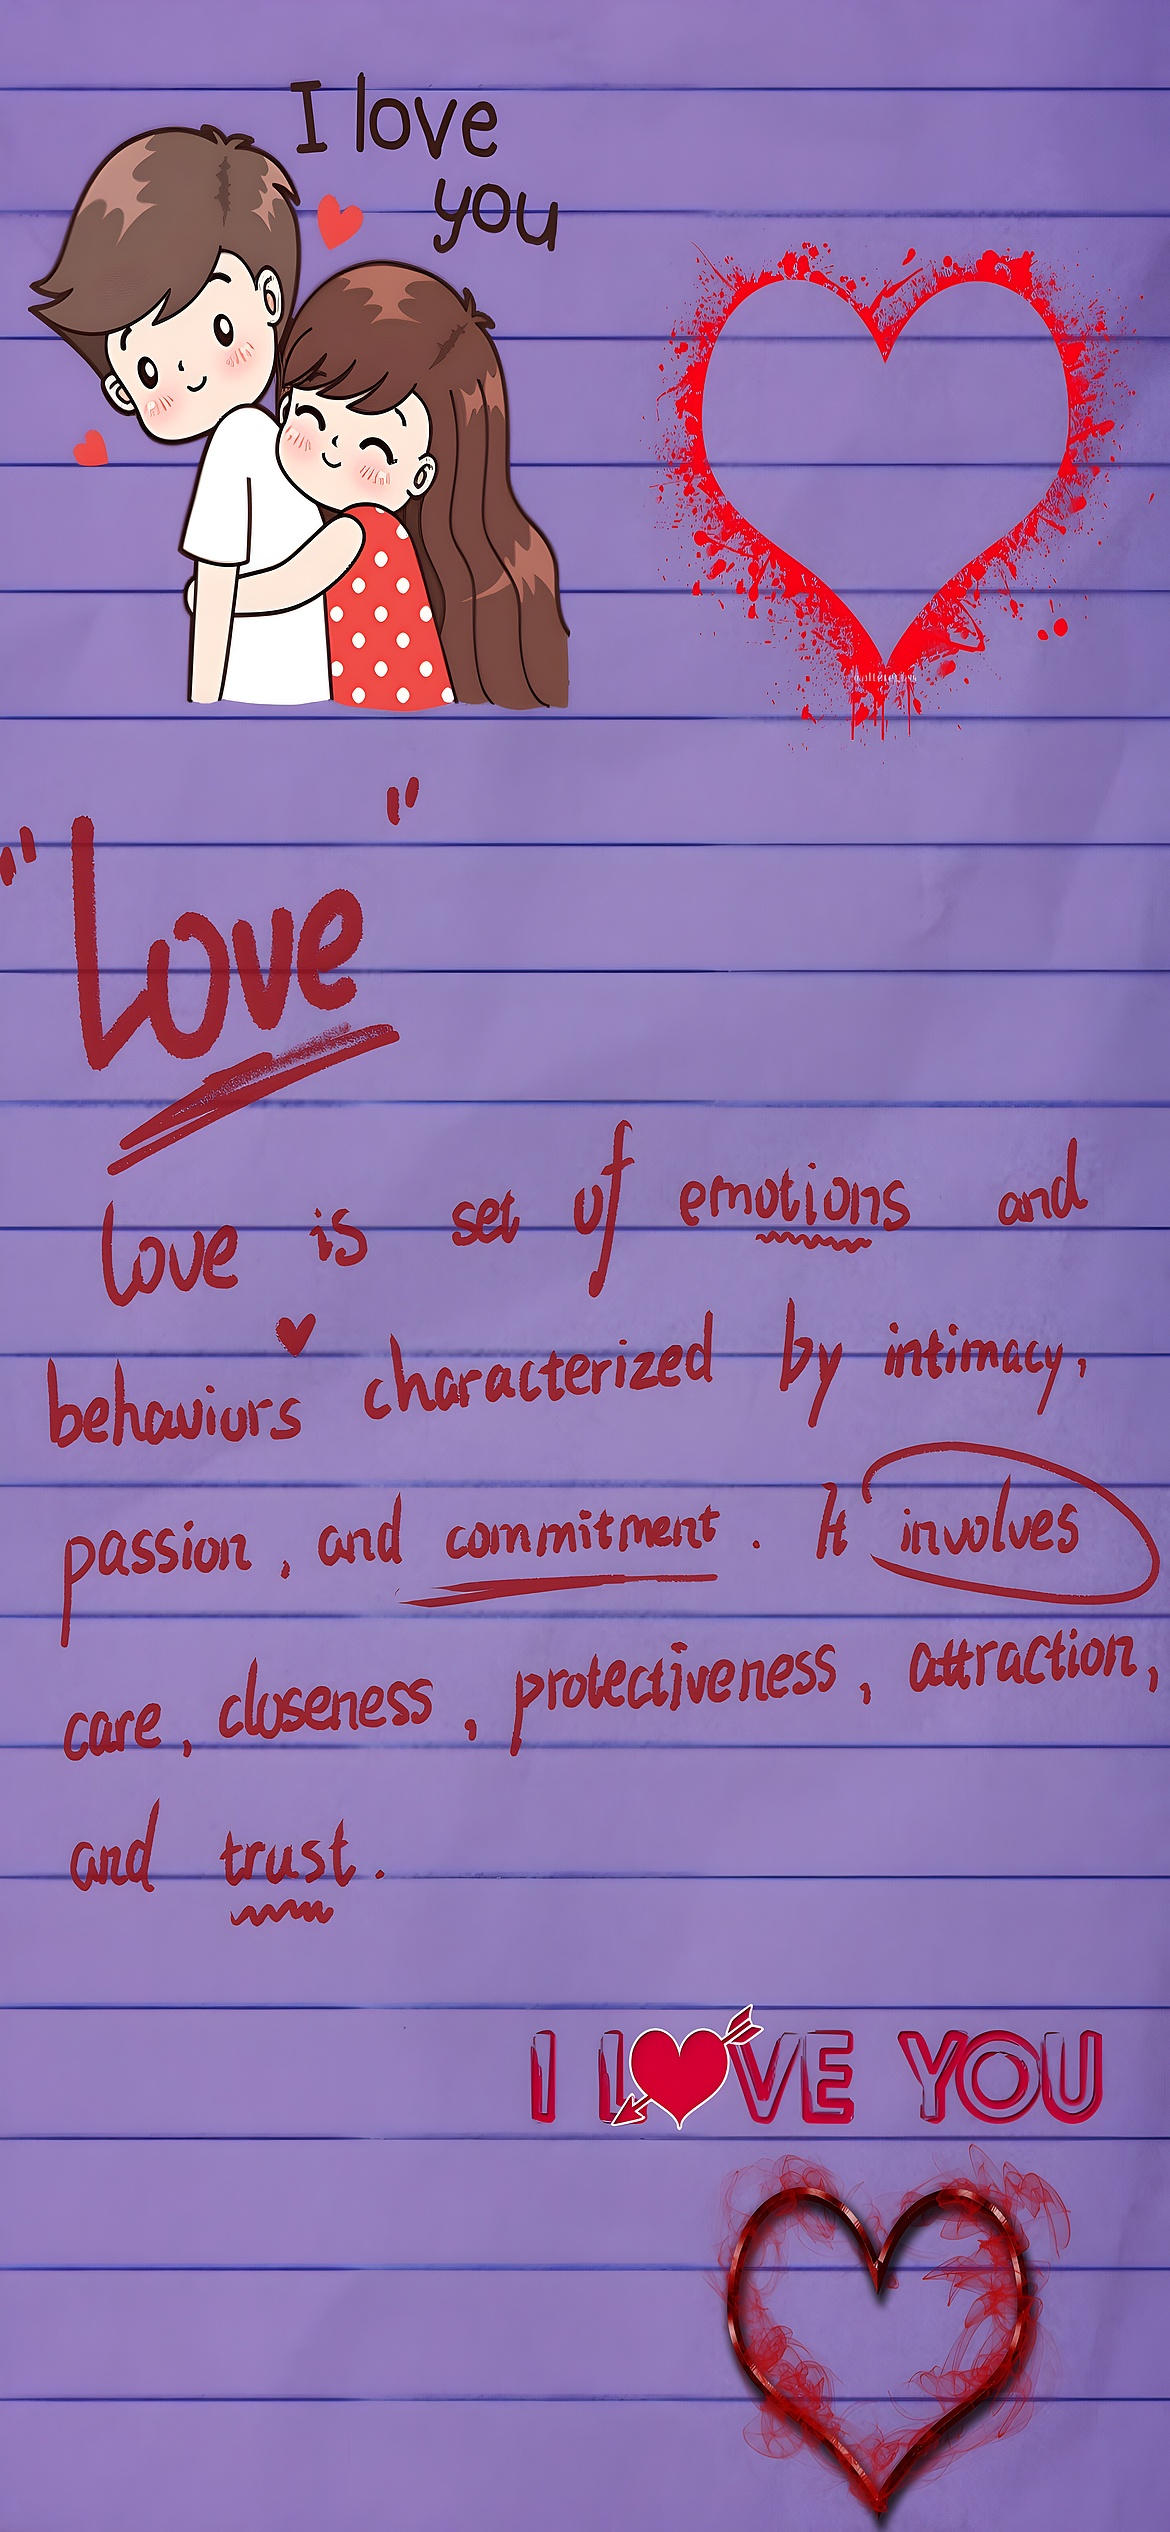 I love
you
"Love"
Love is set of emotions and
behaviors characterized by intimacy,
passion, and commitment. It involves
care, closeness, protectiveness, attraction,
and trust.
I LOVE YOU